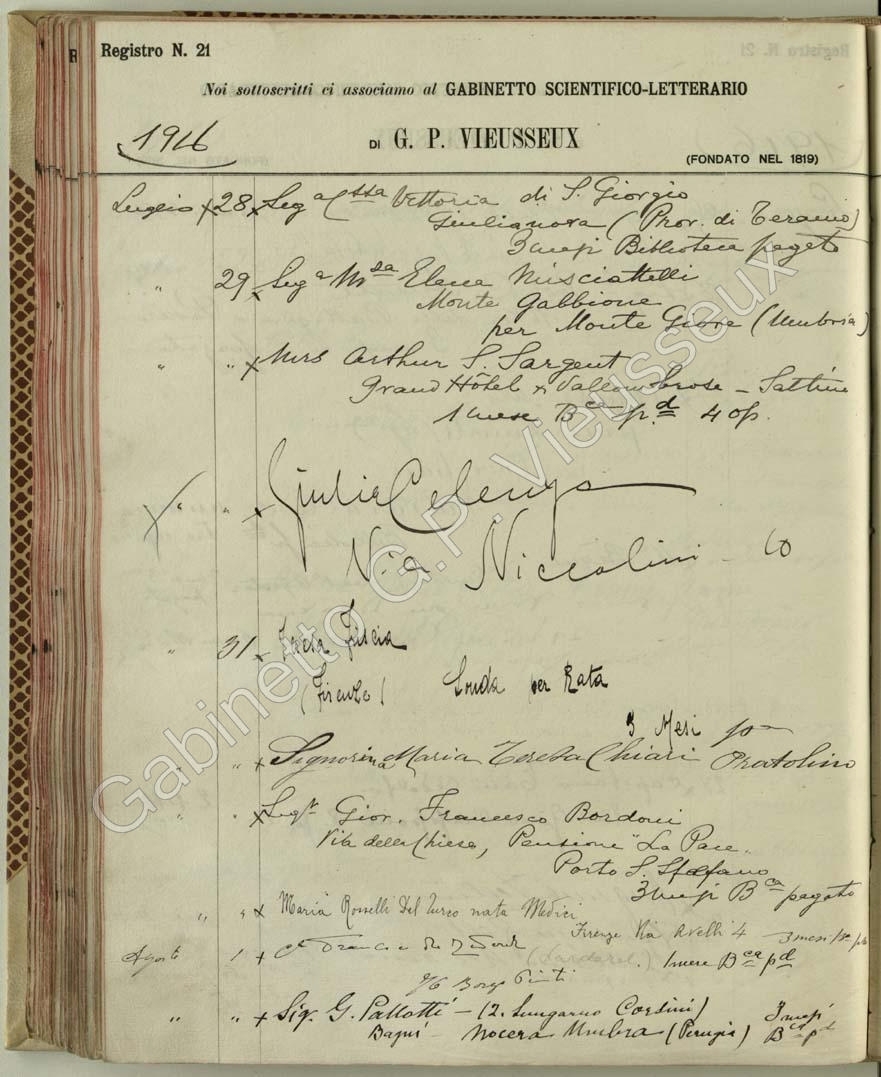 Registro N. 21
Noi sottoscritti ci associamo al GABINETTO SCIENTIFICO-LETTERARIO
1916
DI G. P. VIEUSSEUX
(FONDATO NEL 1819)
Luglio x 28 x Sega Cssa Vettoria di S. Giorgio
Giulianova (Prov. di Teramo)
3 mesi Biblioteca pagato
" 29 x Sega Msa Elena Misciattelli
Monte Gabbione
per Monte Giove (Umbria)
" " x Mrs Arthur S. Sargent
Grand Hôtel Vallombrosa - Saltino
1 mese Bca pd 4 op.
" " x Giulia Celenza
Via Niccolini - 60
" 31 x
(Firenze) Londa per Rata
3 Mesi
" " x Signorina Maria Teresa Chiari Pratolino
" " x Segr Giov. Francesco Bordoni
Via della Chiesa, Pensione "La Pace"
Porto S. Stefano
3 mesi Bca pagato
" " x Maria Rosselli Del Turco nata Medici
Firenze Via Avelli 4 3 mesi
Agosto 1 x (Larderel) 1 mese Bca pd
Borgo Pinti
" " x Sig. G. Pallotti - 12. Lungarno Corsini) 3 mesi
Bagni Nocera Umbra (Perugia) Bca pd
Gabinetto G.P. Vieusseux